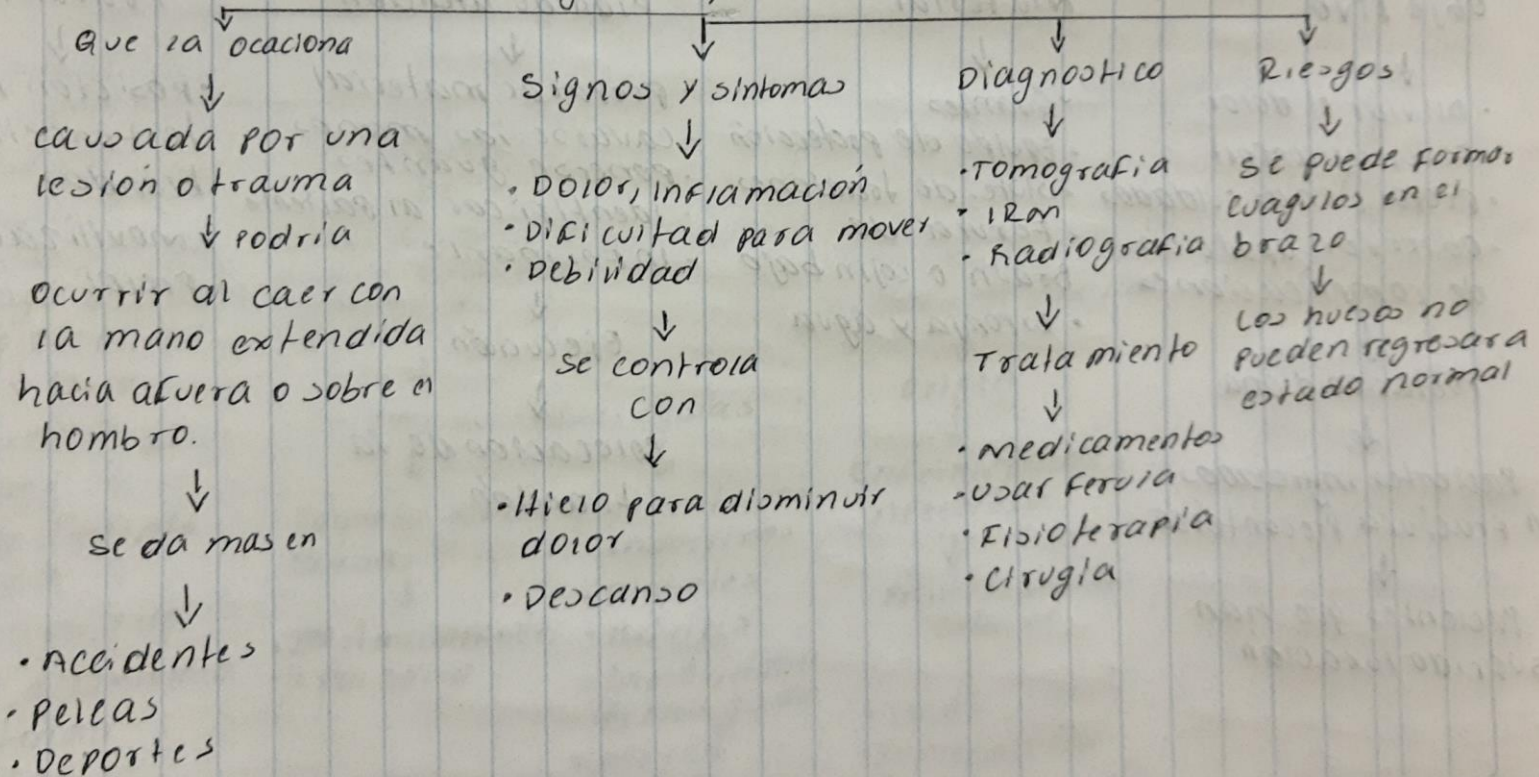 Que la ocaciona
causada por una
lesión o trauma
podria
ocurrir al caer con
la mano extendida
hacia afuera o sobre el
hombro.
se da mas en
• Accidentes
• peleas
• Deportes
Signos y sintomas
• Dolor, inflamación
• Dificultad para mover
• Debilidad
se controla
con
• Hielo para disminuir
dolor
• Descanso
Diagnostico
• Tomografia
• IRM
• Radiografia
Tratamiento
• Medicamentos
• Usar ferula
• Fisioterapia
• Cirugia
Riesgos
se puede formar
cuagulos en el
brazo
Los huesos no
pueden regresar a
estado normal